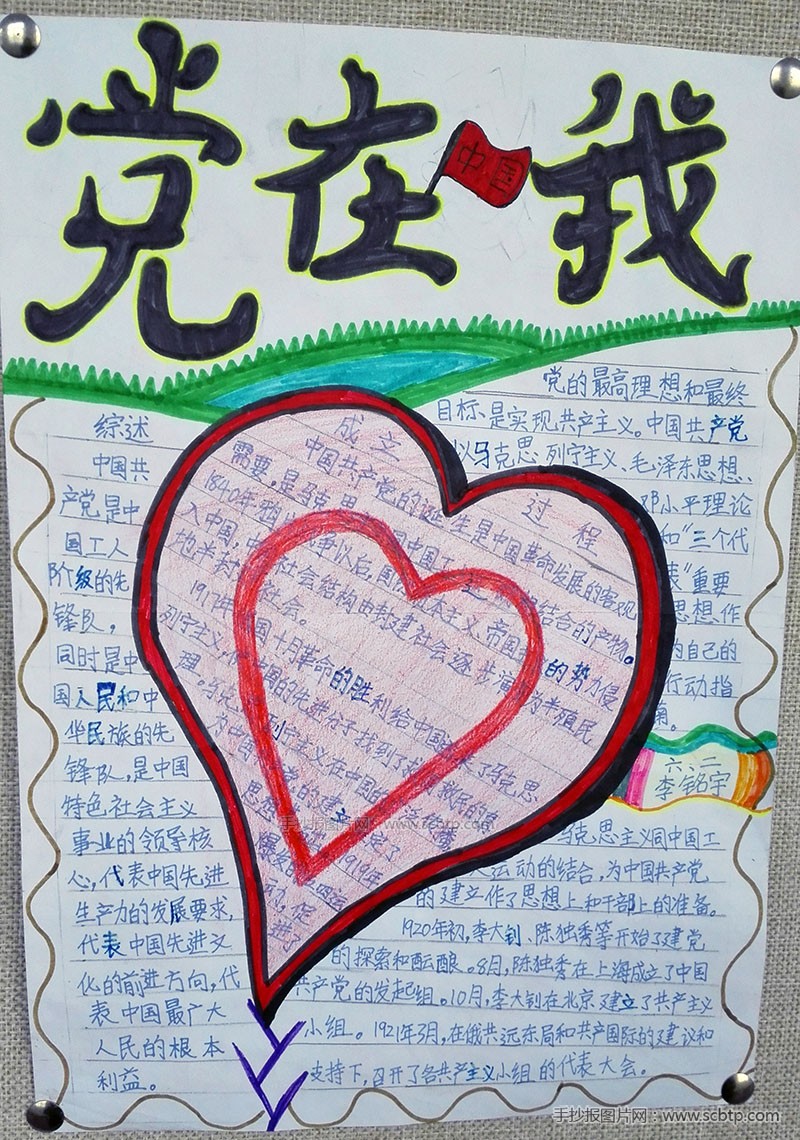 党在我
中国
党的最高理想和最终
目标、是实现共产主义。中国共产党
以马克思列宁主义、毛泽东思想、
邓小平理论
和"三个代
表"重要
思想作
为自己的
行动指
南。
综述
中国共
产党是中
国工人
阶级的先
锋队，
同时是中
国人民和中
华民族的先
锋队，是中国
特色社会主义
事业的领导核
心，代表中国先进
生产力的发展要求，
代表中国先进文
化的前进方向，代
表中国最广大
人民的根本
利益。
成立过程
中国共产党的诞生是中国革命发展的客观
需要，是马克思 同中国工 结合的产物。
1840年鸦 争以后，由 本主义、帝国 的势力侵
入中国，中 社会结构由封建社会逐步演 为半殖民
地半封 社会。
1917年 国十月革命的胜利给中国 了马克思
列宁主义， 国的先进分子找到了
理。马克 列 主义在中国的
六、二
李铭宇
马克思主义同中国工
人运动的结合，为中国共产党
的建立作了思想上和干部上的准备。
1920年初，李大钊、陈独秀等开始了建党
的探索和酝酿。8月，陈独秀在上海成立了中国
共产党的发起组。10月，李大钊在北京建立了共产主义
小组。1921年3月，在俄共远东局和共产国际的建议和
支持下，召开了各共产主义小组的代表大会。
手抄报图片网 www.scbtp.com
手抄报图片网：www.scbtp.com